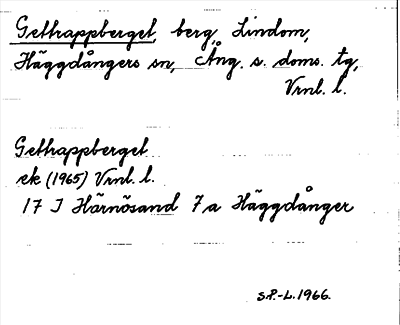 Gettrappberget, berg, Lindom,
Häggdångers sn, Ång. s. doms. tg,
Vrnl. l.
Gettrappberget
ek (1965) Vrnl. l.
17 J Härnösand 7 a Häggdånger
S.P.-L. 1966.